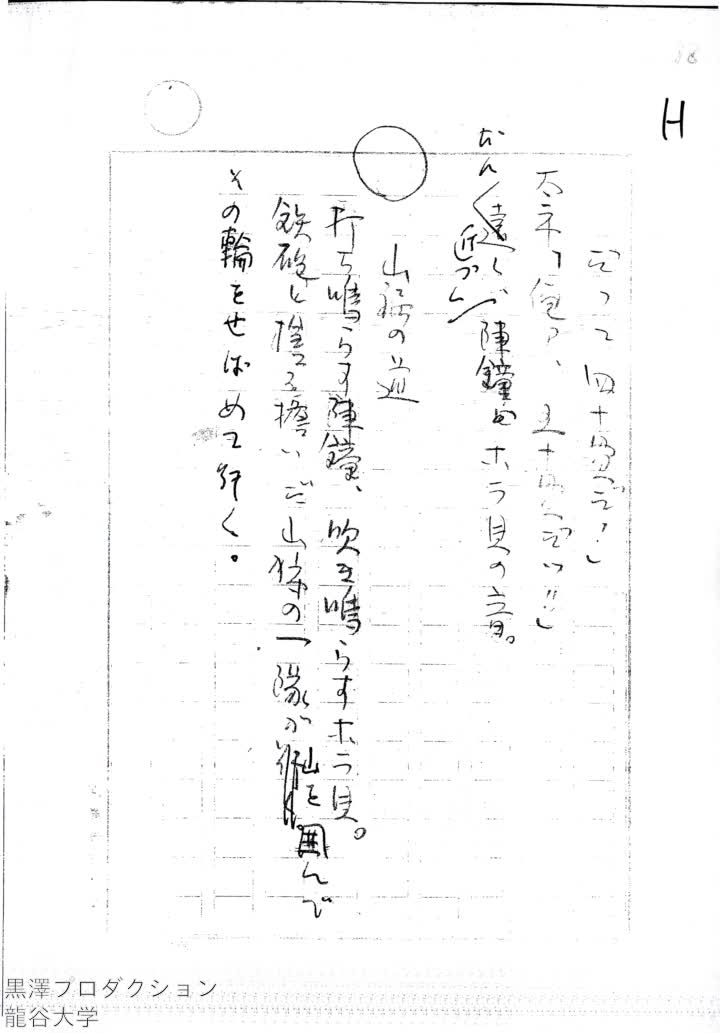 H
だって四十男だ!」
「俺ァ、五十男だッ!!」
遠くで陣鐘とホラ貝の音。
近づく
山裾の道
打ち鳴らす陣鐘、吹き鳴らすホラ貝。
鉄砲と槍を担いだ山狩の一隊が
山を囲んで
その輪をせばめて行く。
黒澤プロダクション
龍谷大学